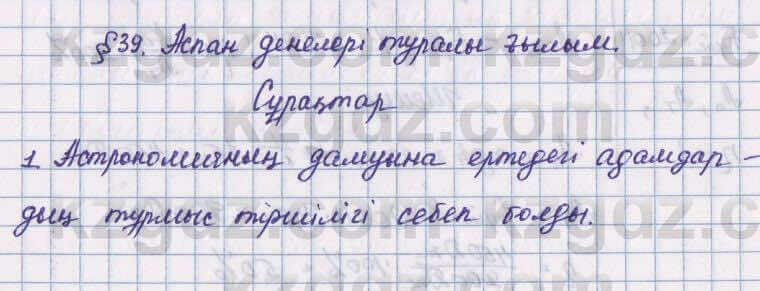 §39. Аспан денелері туралы ғылым.
Сұрақтар
1. Астрономияның дамуына ертедегі адамдар-
дың тұрмыс тіршілігі себеп болды.
kzgdz.com